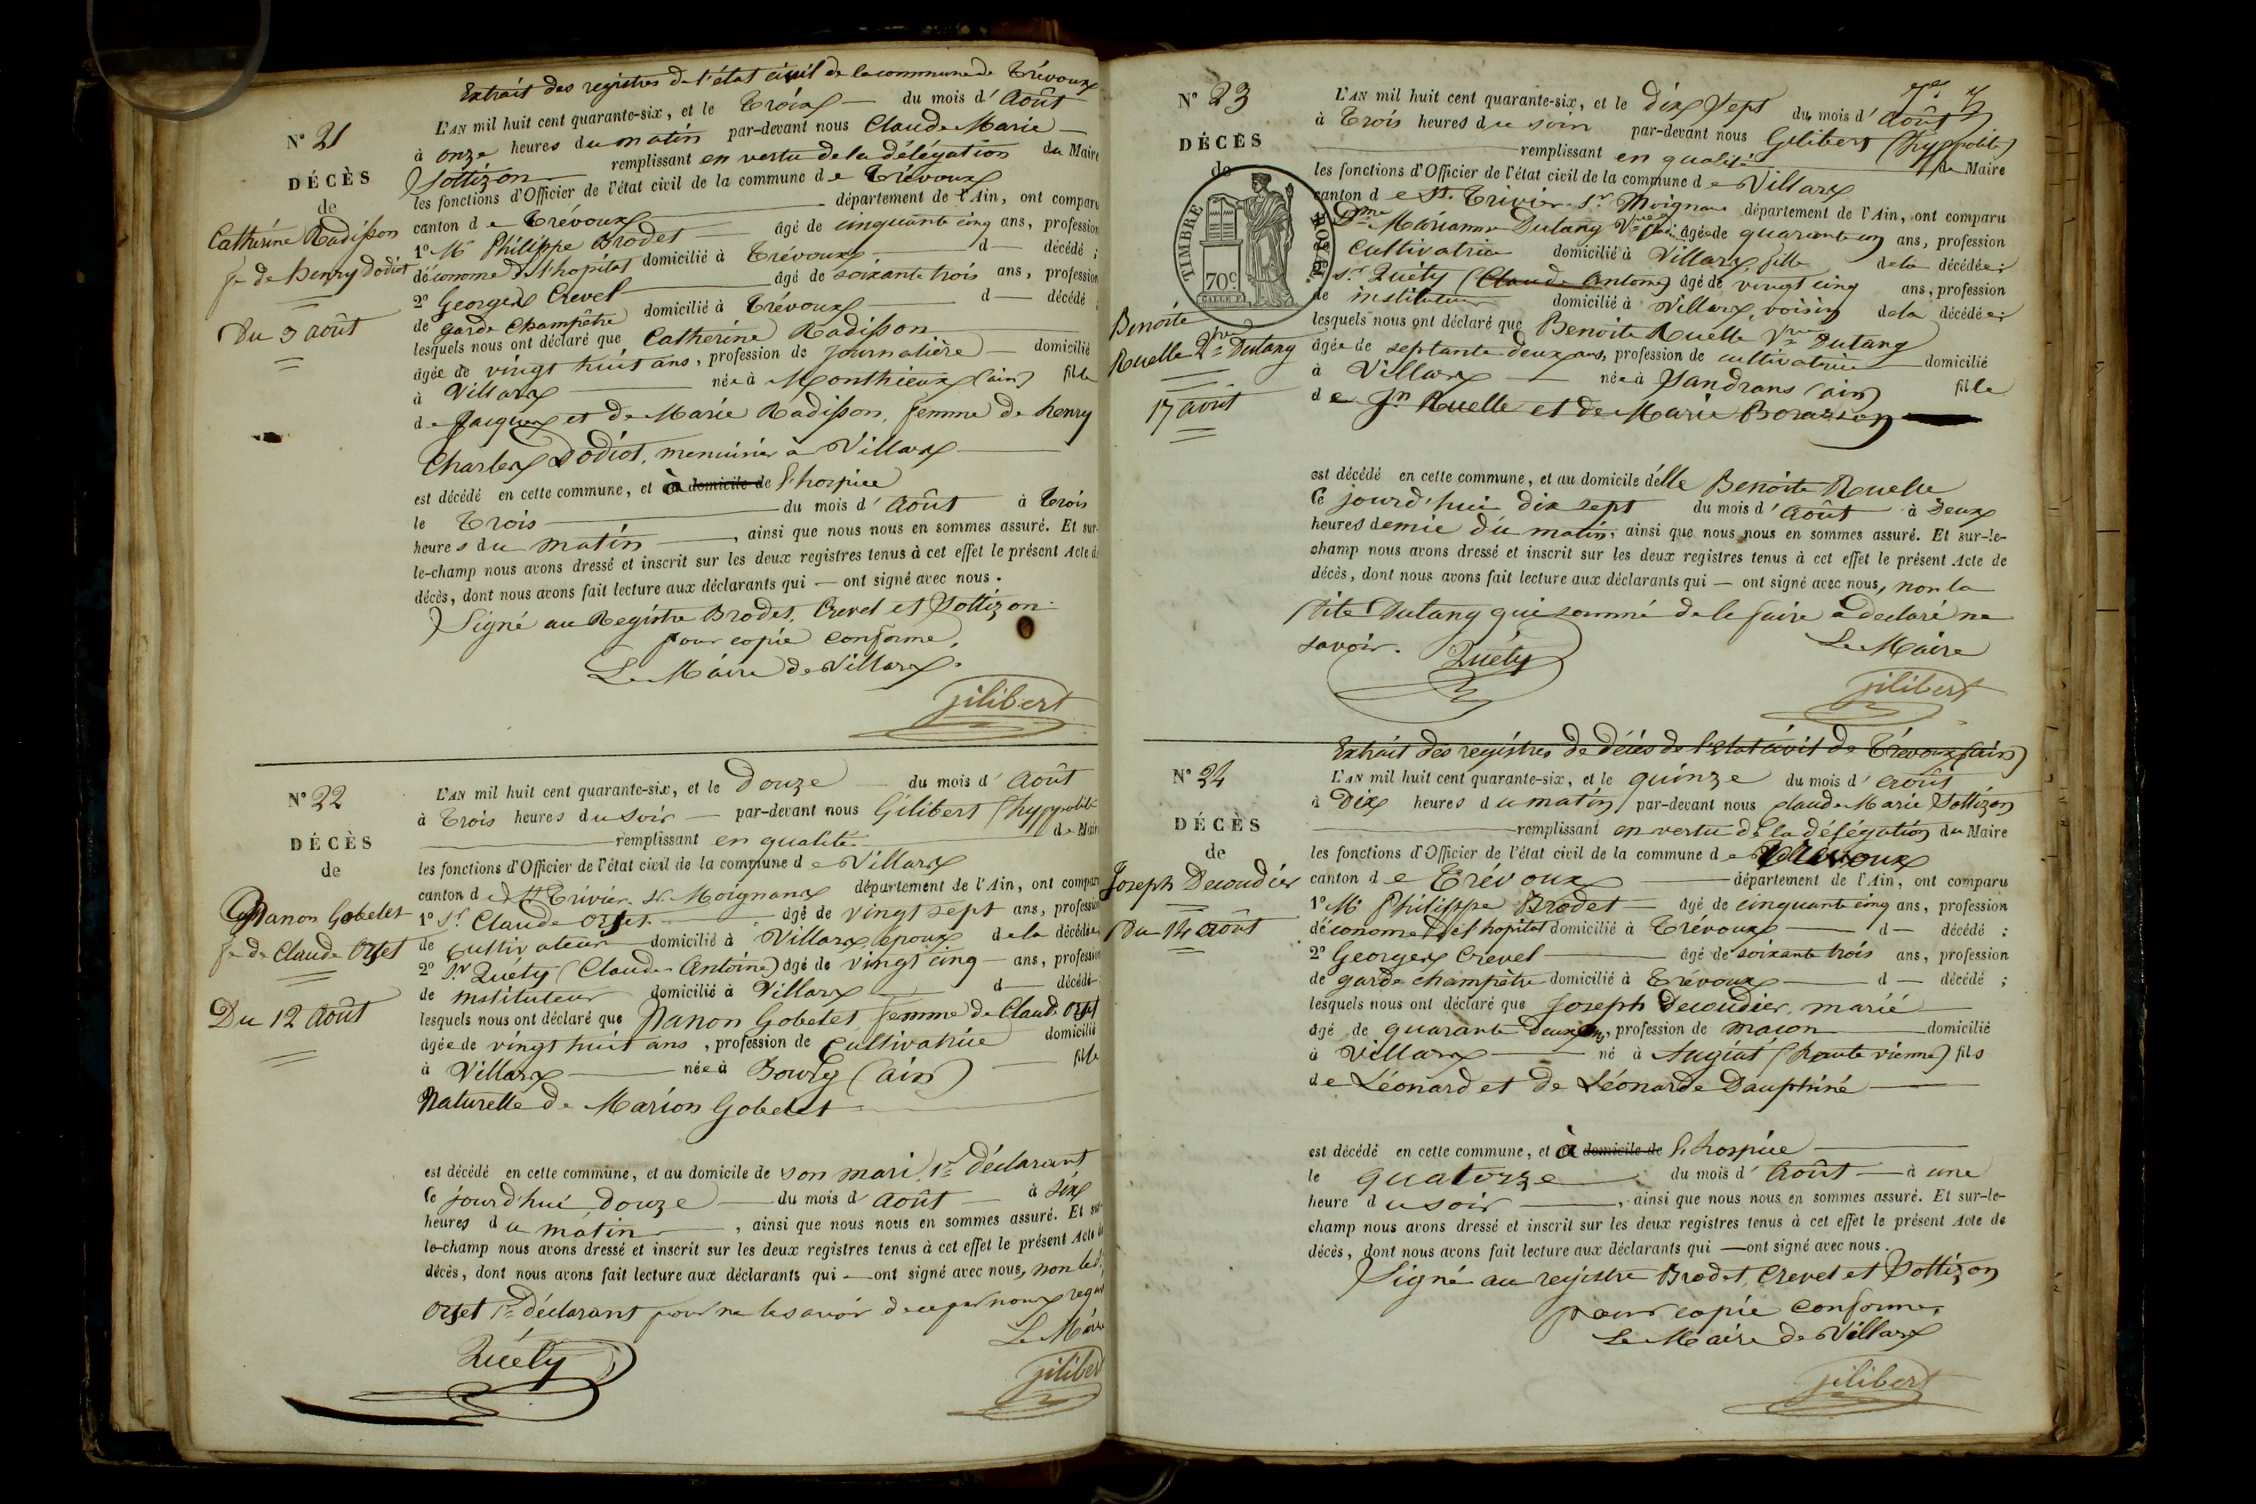 Extrait des registres de l'état civil de la commune de Trévoux
N° 21
DÉCÈS
de
Catherine Radisson
fe de henry Dodiot
Du 3 août
L'AN mil huit cent quarante-six, et le Trois du mois d'Août
à onze heures du matin par-devant nous Claude Marie
Sottizon remplissant en vertu de la délégation du Maire
les fonctions d'Officier de l'état civil de la commune de Trévoux
canton de Trévoux département de l'Ain, ont comparu
1° Mr Philippe Brodet âgé de cinquante cinq ans, profession
d'économe de l'hopital domicilié à Trévoux d décédé ;
2° Georges Crevel âgé de soixante trois ans, profession
de garde Champêtre domicilié à Trévoux d décédé ;
lesquels nous ont déclaré que Catherine Radisson
âgée de vingt huit ans, profession de journalière domicilié
à Villars née à Monthieux (ain) fille
de Jacques et de Marie Radisson, femme de henry
Charles Dodiot, menuisier à Villars
est décédé en cette commune, et à domicile de l'hospice
le Trois du mois d'Août à Trois
heures du matin, ainsi que nous nous en sommes assuré. Et sur-
le-champ nous avons dressé et inscrit sur les deux registres tenus à cet effet le présent Acte de
décès, dont nous avons fait lecture aux déclarants qui — ont signé avec nous.
Signé au Registre Brodet, Crevel et Sottizon
pour copie conforme,
Le Maire de Villars.
jilibert
N° 22
DÉCÈS
de
Nanon Gobelet
fe de Claude Orset
Du 12 Août
L'AN mil huit cent quarante-six, et le Douze du mois d'Août
à Trois heures du soir par-devant nous Gilibert (hyppolite
remplissant en qualité de Maire
les fonctions d'Officier de l'état civil de la commune de Villars
canton de St Trivier sr Moignans département de l'Ain, ont comparu
1° Sr Claude Orset âgé de vingt sept ans, profession
de Cultivateur domicilié à Villars, époux de la décédée,
2° Sr Quéty (Claude Antoine) âgé de vingt cinq ans, profession
de instituteur domicilié à Villars d décédé
lesquels nous ont déclaré que Nanon Gobelet femme de Claude Orset
âgée de vingt huit ans, profession de Cultivatrice domicilié
à Villars née à Bourg (ain) fille
Naturelle de Marion Gobelet
est décédé en cette commune, et au domicile de son mari, 1er Déclarant
le jourd'hui Douze du mois d'Août à six
heures du matin, ainsi que nous nous en sommes assuré. Et sur-
le-champ nous avons dressé et inscrit sur les deux registres tenus à cet effet le présent Acte de
décès, dont nous avons fait lecture aux déclarants qui — ont signé avec nous, non le
Orset 1er Déclarant pour ne le savoir de ce par nous
Le Maire
Quéty
jilibert
N° 23
DÉCÈS
de
TIMBRE ROYAL
70c
Benoite
Ruelle Vve Dutang
17 août
L'AN mil huit cent quarante-six, et le dix sept du mois d'Août
à Trois heures du soir par-devant nous Gilibert (hyppolite)
remplissant en qualité de Maire
les fonctions d'Officier de l'état civil de la commune de Villars
canton de St Trivier sr Moignans département de l'Ain, ont comparu
Dme Marianne Dutang âgée de quarante cinq ans, profession
Cultivatrice domicilié à Villars, fille de la décédée ;
sr Quéty (Claude Antoine) âgé de vingt cinq ans, profession
de instituteur domicilié à Villars, voisin de la décédée ;
lesquels nous ont déclaré que Benoite Ruelle Vve Dutang
âgée de septante deux ans, profession de cultivatrice domicilié
à Villars née à Sandrans (ain) fille
de Jn Ruelle et de Marie
est décédé en cette commune, et au domicile d'elle Benoite Ruelle
le jourd'hui dix sept du mois d'Août à Deux
heures demie du matin, ainsi que nous nous en sommes assuré. Et sur-le-
champ nous avons dressé et inscrit sur les deux registres tenus à cet effet le présent Acte de
décès, dont nous avons fait lecture aux déclarants qui — ont signé avec nous, non la
dite Dutang qui sommé de le faire a déclaré ne
savoir.
Le Maire
Quéty
jilibert
Extrait des registres de décès de l'état civil de Trévoux (ain)
N° 24
DÉCÈS
de
Joseph Decoudier
Du 14 Août
L'AN mil huit cent quarante-six, et le quinze du mois d'Août
à Dix heures du matin par-devant nous Claude Marie Sottizon
remplissant en vertu de la délégation du Maire
les fonctions d'Officier de l'état civil de la commune de Trévoux
canton de Trévoux département de l'Ain, ont comparu
1° Mr Philippe Brodet âgé de cinquante cinq ans, profession
d'économe de l'hopital domicilié à Trévoux d décédé ;
2° Georges Crevel âgé de soixante trois ans, profession
de garde champêtre domicilié à Trévoux d décédé ;
lesquels nous ont déclaré que Joseph Decoudier, marié
âgé de quarante deux ans, profession de maçon domicilié
à Villars né à Augiat (haute vienne) fils
de Léonard et de Léonarde Dauphiné
est décédé en cette commune, et à domicile de l'hospice
le quatorze du mois d'Août à une
heure du soir, ainsi que nous nous en sommes assuré. Et sur-le-
champ nous avons dressé et inscrit sur les deux registres tenus à cet effet le présent Acte de
décès, dont nous avons fait lecture aux déclarants qui — ont signé avec nous.
Signé au registre Brodet, Crevel et Sottizon
pour copie conforme,
Le Maire de Villars
jilibert